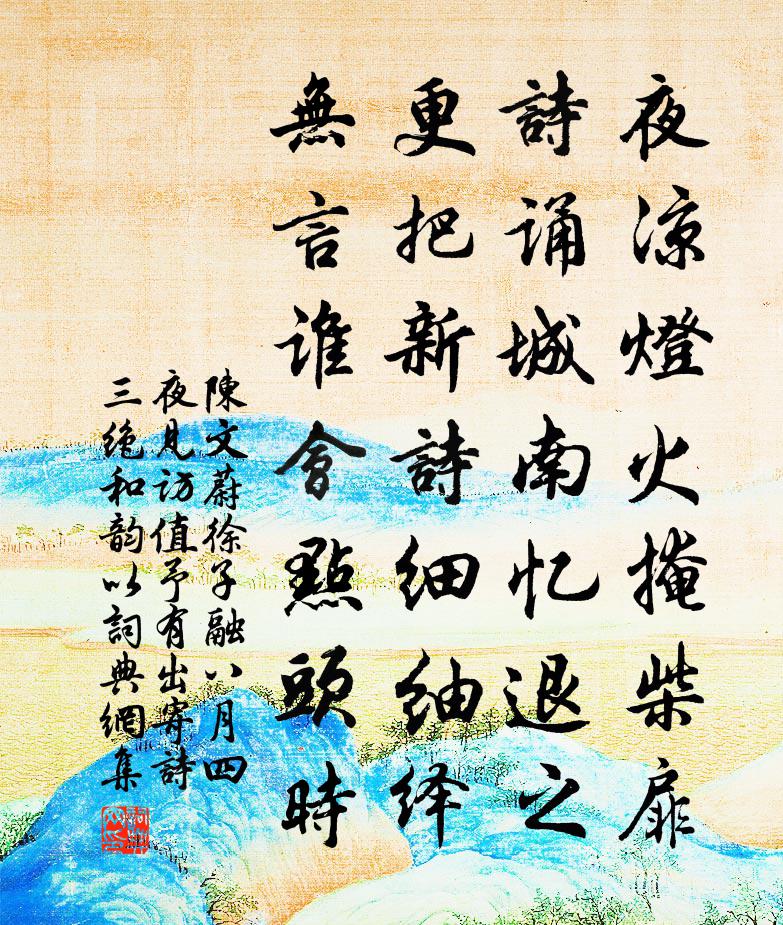 夜凉燈火掩柴扉
詩诵城南忆退之
更把新詩细紬绎
無言谁會點頭時
陳文蔚徐子融八月四
夜見访值予有出寄詩
三绝和韵以詞典網集